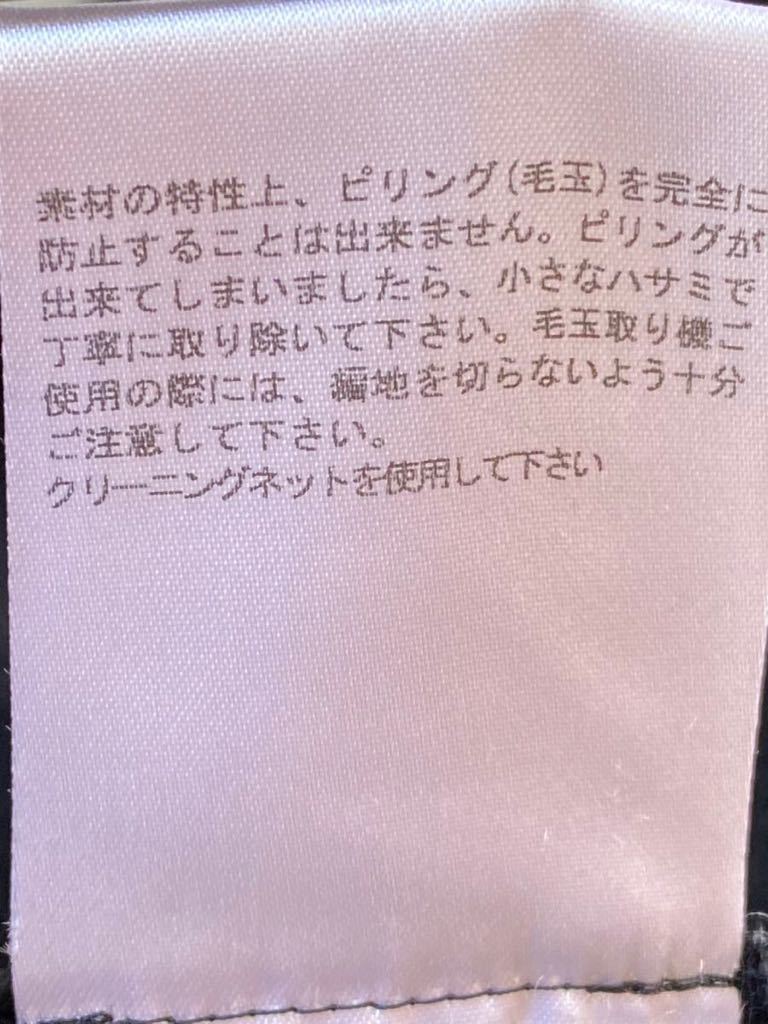 素材の特性上、ピリング(毛玉)を完全に
防止することは出来ません。ピリングが
出来てしまいましたら、小さなハサミで
丁寧に取り除いて下さい。毛玉取り機ご
使用の際には、編地を切らないよう十分
ご注意して下さい。
クリーニングネットを使用して下さい